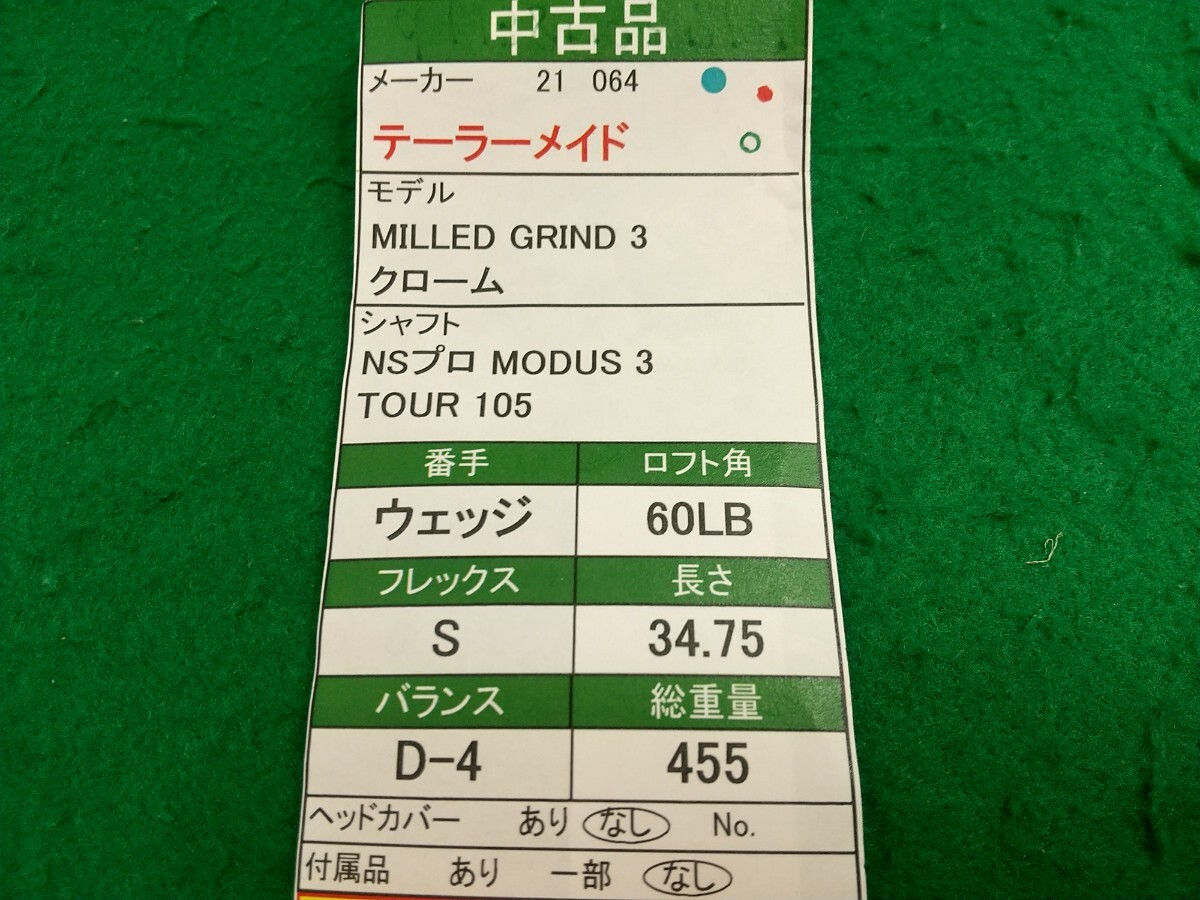 中古品
メーカー 21 064
テーラーメイド
モデル
MILLED GRIND 3
クローム
シャフト
NSプロ MODUS 3
TOUR 105
番手 ロフト角
ウェッジ 60LB
フレックス 長さ
S 34.75
バランス 総重量
D-4 455
ヘッドカバー あり なし No.
付属品 あり 一部 なし